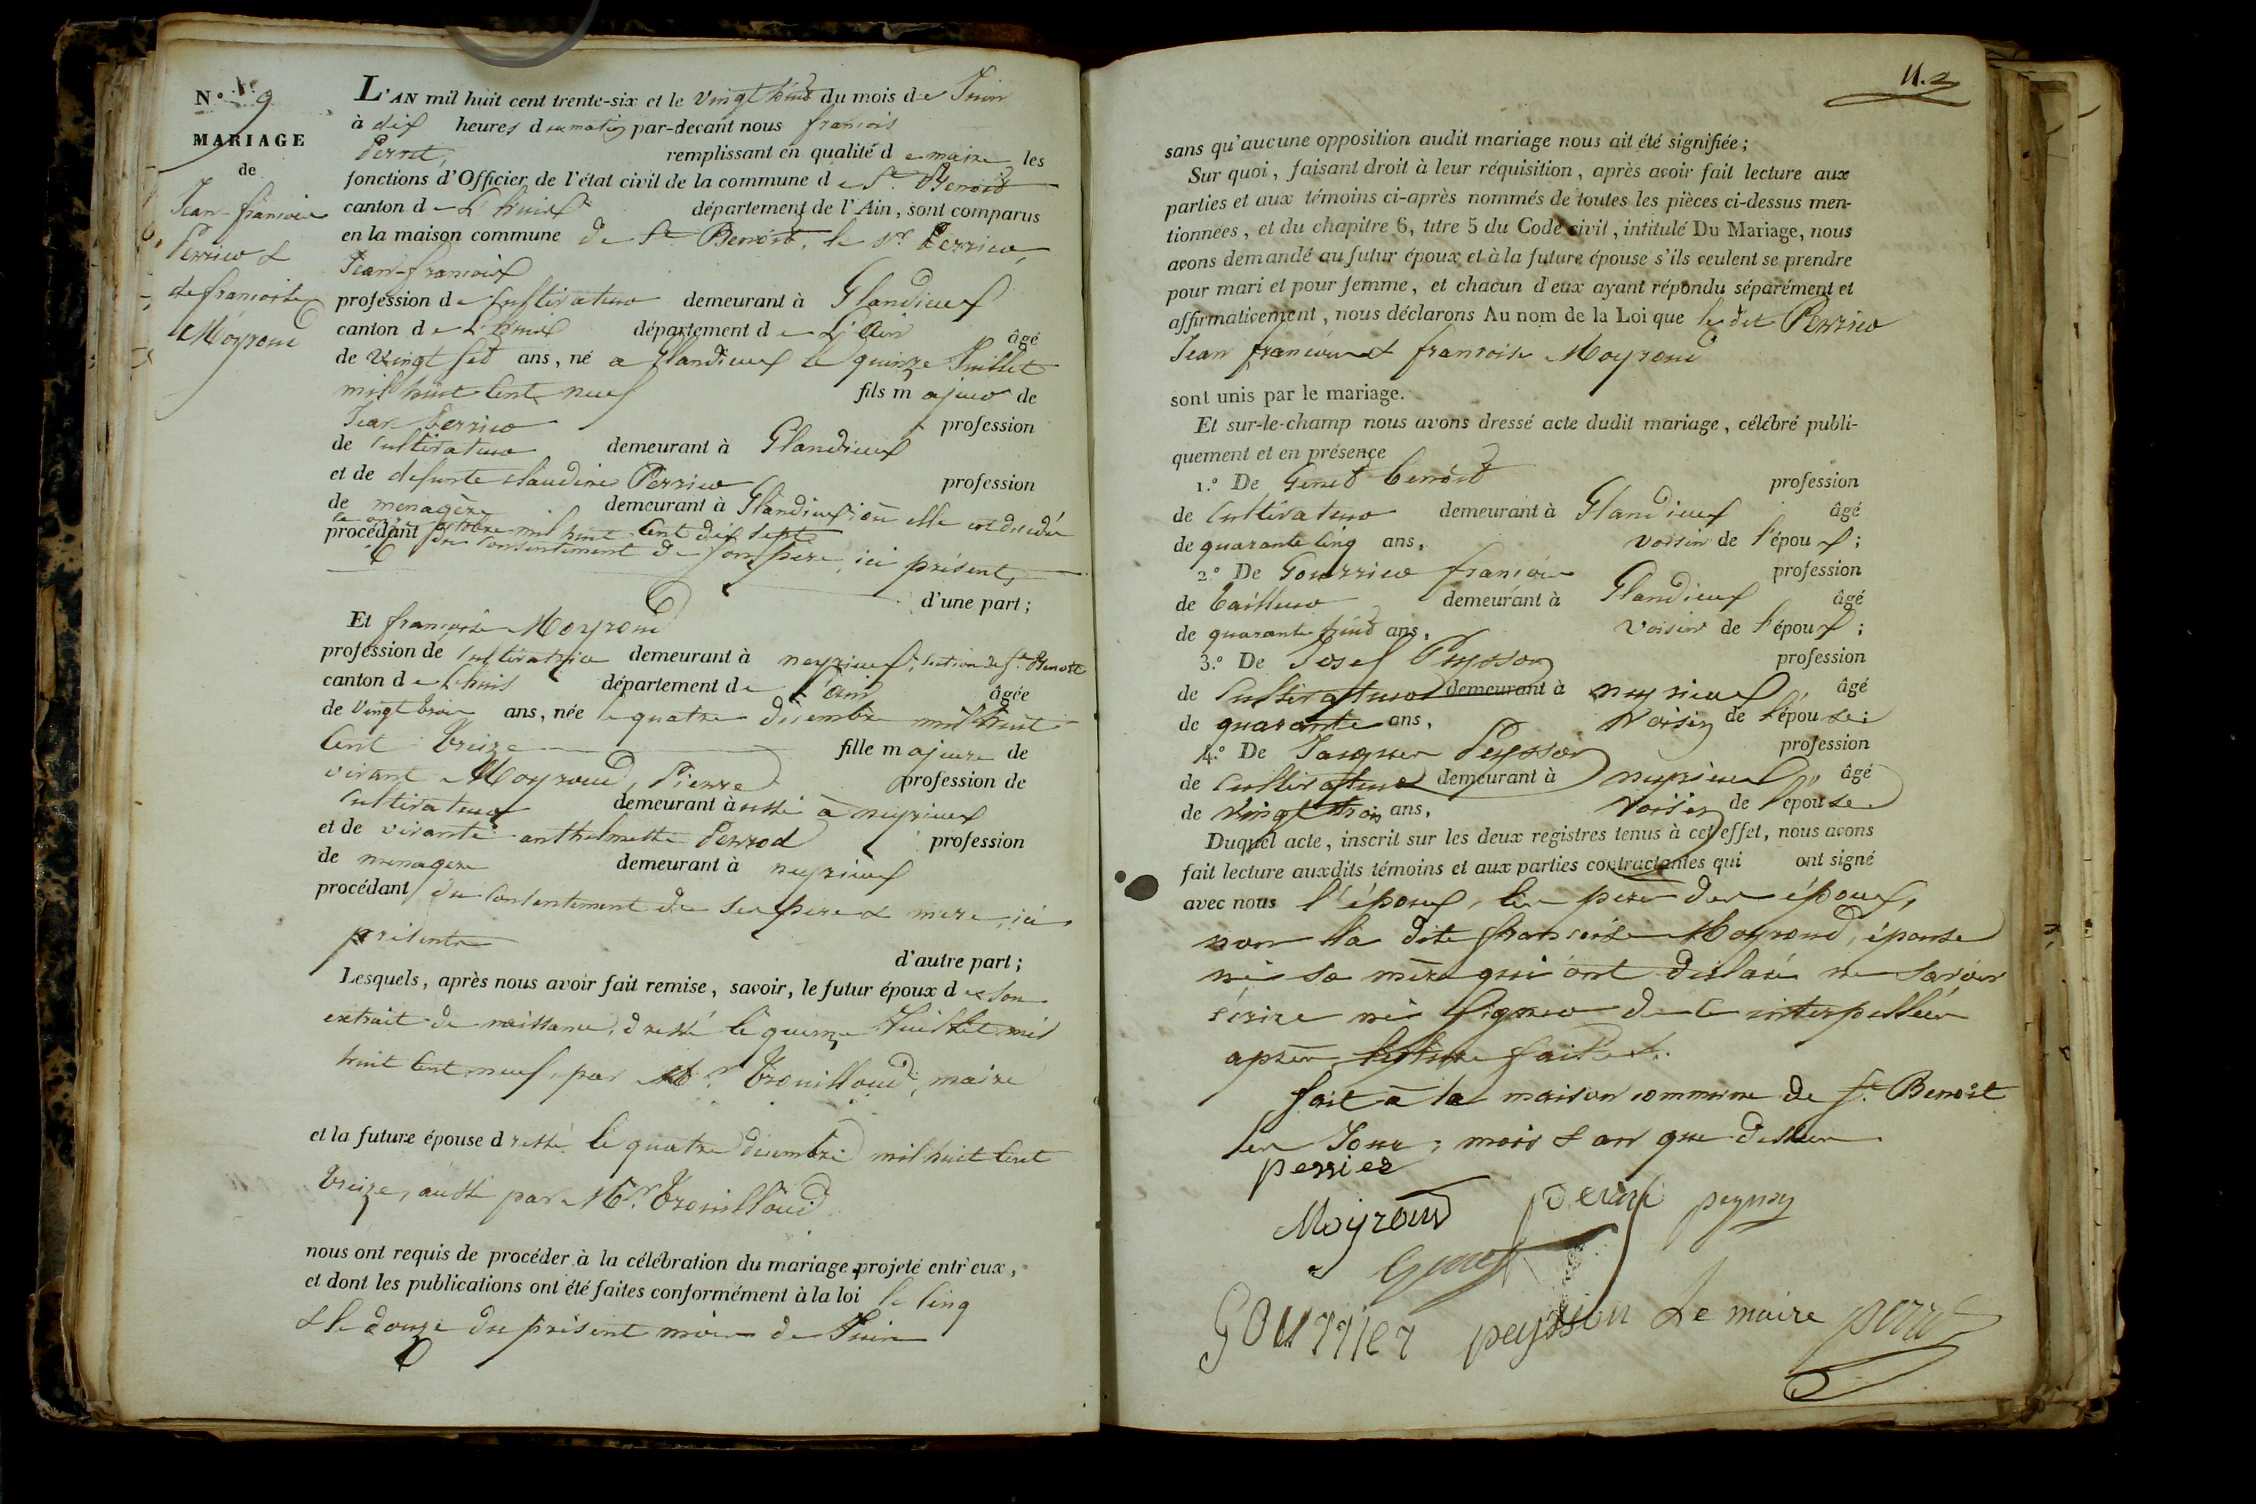 N.° 9
MARIAGE
de
Jean-francois
Perrier &
de francoise
Moyroud
L'AN mil huit cent trente-six et le vingt huit du mois de Juin
à dix heures du matin par-devant nous francois
Perret, remplissant en qualité de maire les
fonctions d'Officier de l'état civil de la commune de St. Benoit
canton de L'huis département de l'Ain, sont comparus
en la maison commune de St Benoit, le Sr Perrier,
Jean-francois
profession de Cultivateur demeurant à Glandieux
canton de L'huis département de L'Ain âgé
de vingt six ans, né a Glandieux le quinze Juillet
mil huit Cent neuf fils majeur de
Jean Perrier profession
de Cultivateur demeurant à Glandieux
et de defunte claudine Perrier profession
de menagère demeurant à Glandieux où elle est décédée
le onze octobre mil huit Cent dix sept
procédant du Consentement de son père, ici présent,
d'une part;
Et francoise Moyroud
profession de Cultivatrice demeurant à neyrieux, section de St. Benoit
canton de L'huis département de L'ain âgée
de vingt trois ans, née le quatre décembre mil huit
Cent treize fille majeure de
vivant Moyroud, Pierre profession de
Cultivateur demeurant à aussi à neyrieux
et de vivante anthelmette Perrod profession
de menagere demeurant à neyrieux
procédant du Consentement de ses père & mère, ici
présents
d'autre part;
Lesquels, après nous avoir fait remise, savoir, le futur époux de son
extrait de naissance, dressé le quinze Juillet mil
huit Cent neuf, par Mr. Trouilloud, maire
et la future épouse dressé le quatre décembre mil huit Cent
treize, aussi par Mr. Trouilloud
nous ont requis de procéder à la célébration du mariage projeté entr'eux,
et dont les publications ont été faites conformément à la loi le Cinq
& le douze du présent mois de Juin
sans qu'aucune opposition audit mariage nous ait été signifiée;
Sur quoi, faisant droit à leur réquisition, après avoir fait lecture aux
parties et aux témoins ci-après nommés de toutes les pièces ci-dessus men-
tionnées, et du chapitre 6, titre 5 du Code civil, intitulé Du Mariage, nous
avons demandé au futur époux et à la future épouse s'ils veulent se prendre
pour mari et pour femme, et chacun d'eux ayant répondu séparément et
affirmativement, nous déclarons Au nom de la Loi que le dit Perrier
Jean francois & francoise Moyroud
sont unis par le mariage.
Et sur-le-champ nous avons dressé acte dudit mariage, célébré publi-
quement et en présence
1.° De Genet benoit profession
de Cultivateur demeurant à Glandieux âgé
de quarante Cinq ans, voisin de l'époux;
2.° De Gourrier francois profession
de tailleur demeurant à Glandieux âgé
de quarante huit ans, voisin de l'époux;
3.° De Josef Peysson profession
de Cultivateur demeurant à neyrieux âgé
de quarante ans, voisin de l'épouse;
4.° De Jacques Peysson profession
de Cultivateur demeurant à neyrieux âgé
de vingt trois ans, voisin de l'épouse
Duquel acte, inscrit sur les deux registres tenus à cet effet, nous avons
fait lecture auxdits témoins et aux parties contractantes qui ont signé
avec nous l'époux, les pères des époux,
non la dite francoise Moyroud, épouse
ni sa mère qui ont déclaré ne savoir
écrire ni signer de ce interpellées
après lecture faite.
fait à la maison commune de St. Benoit
les Jour, mois & an que dessus
perrier
Moyroud perier peyson
Genet
Gourrier peysson Le maire perret